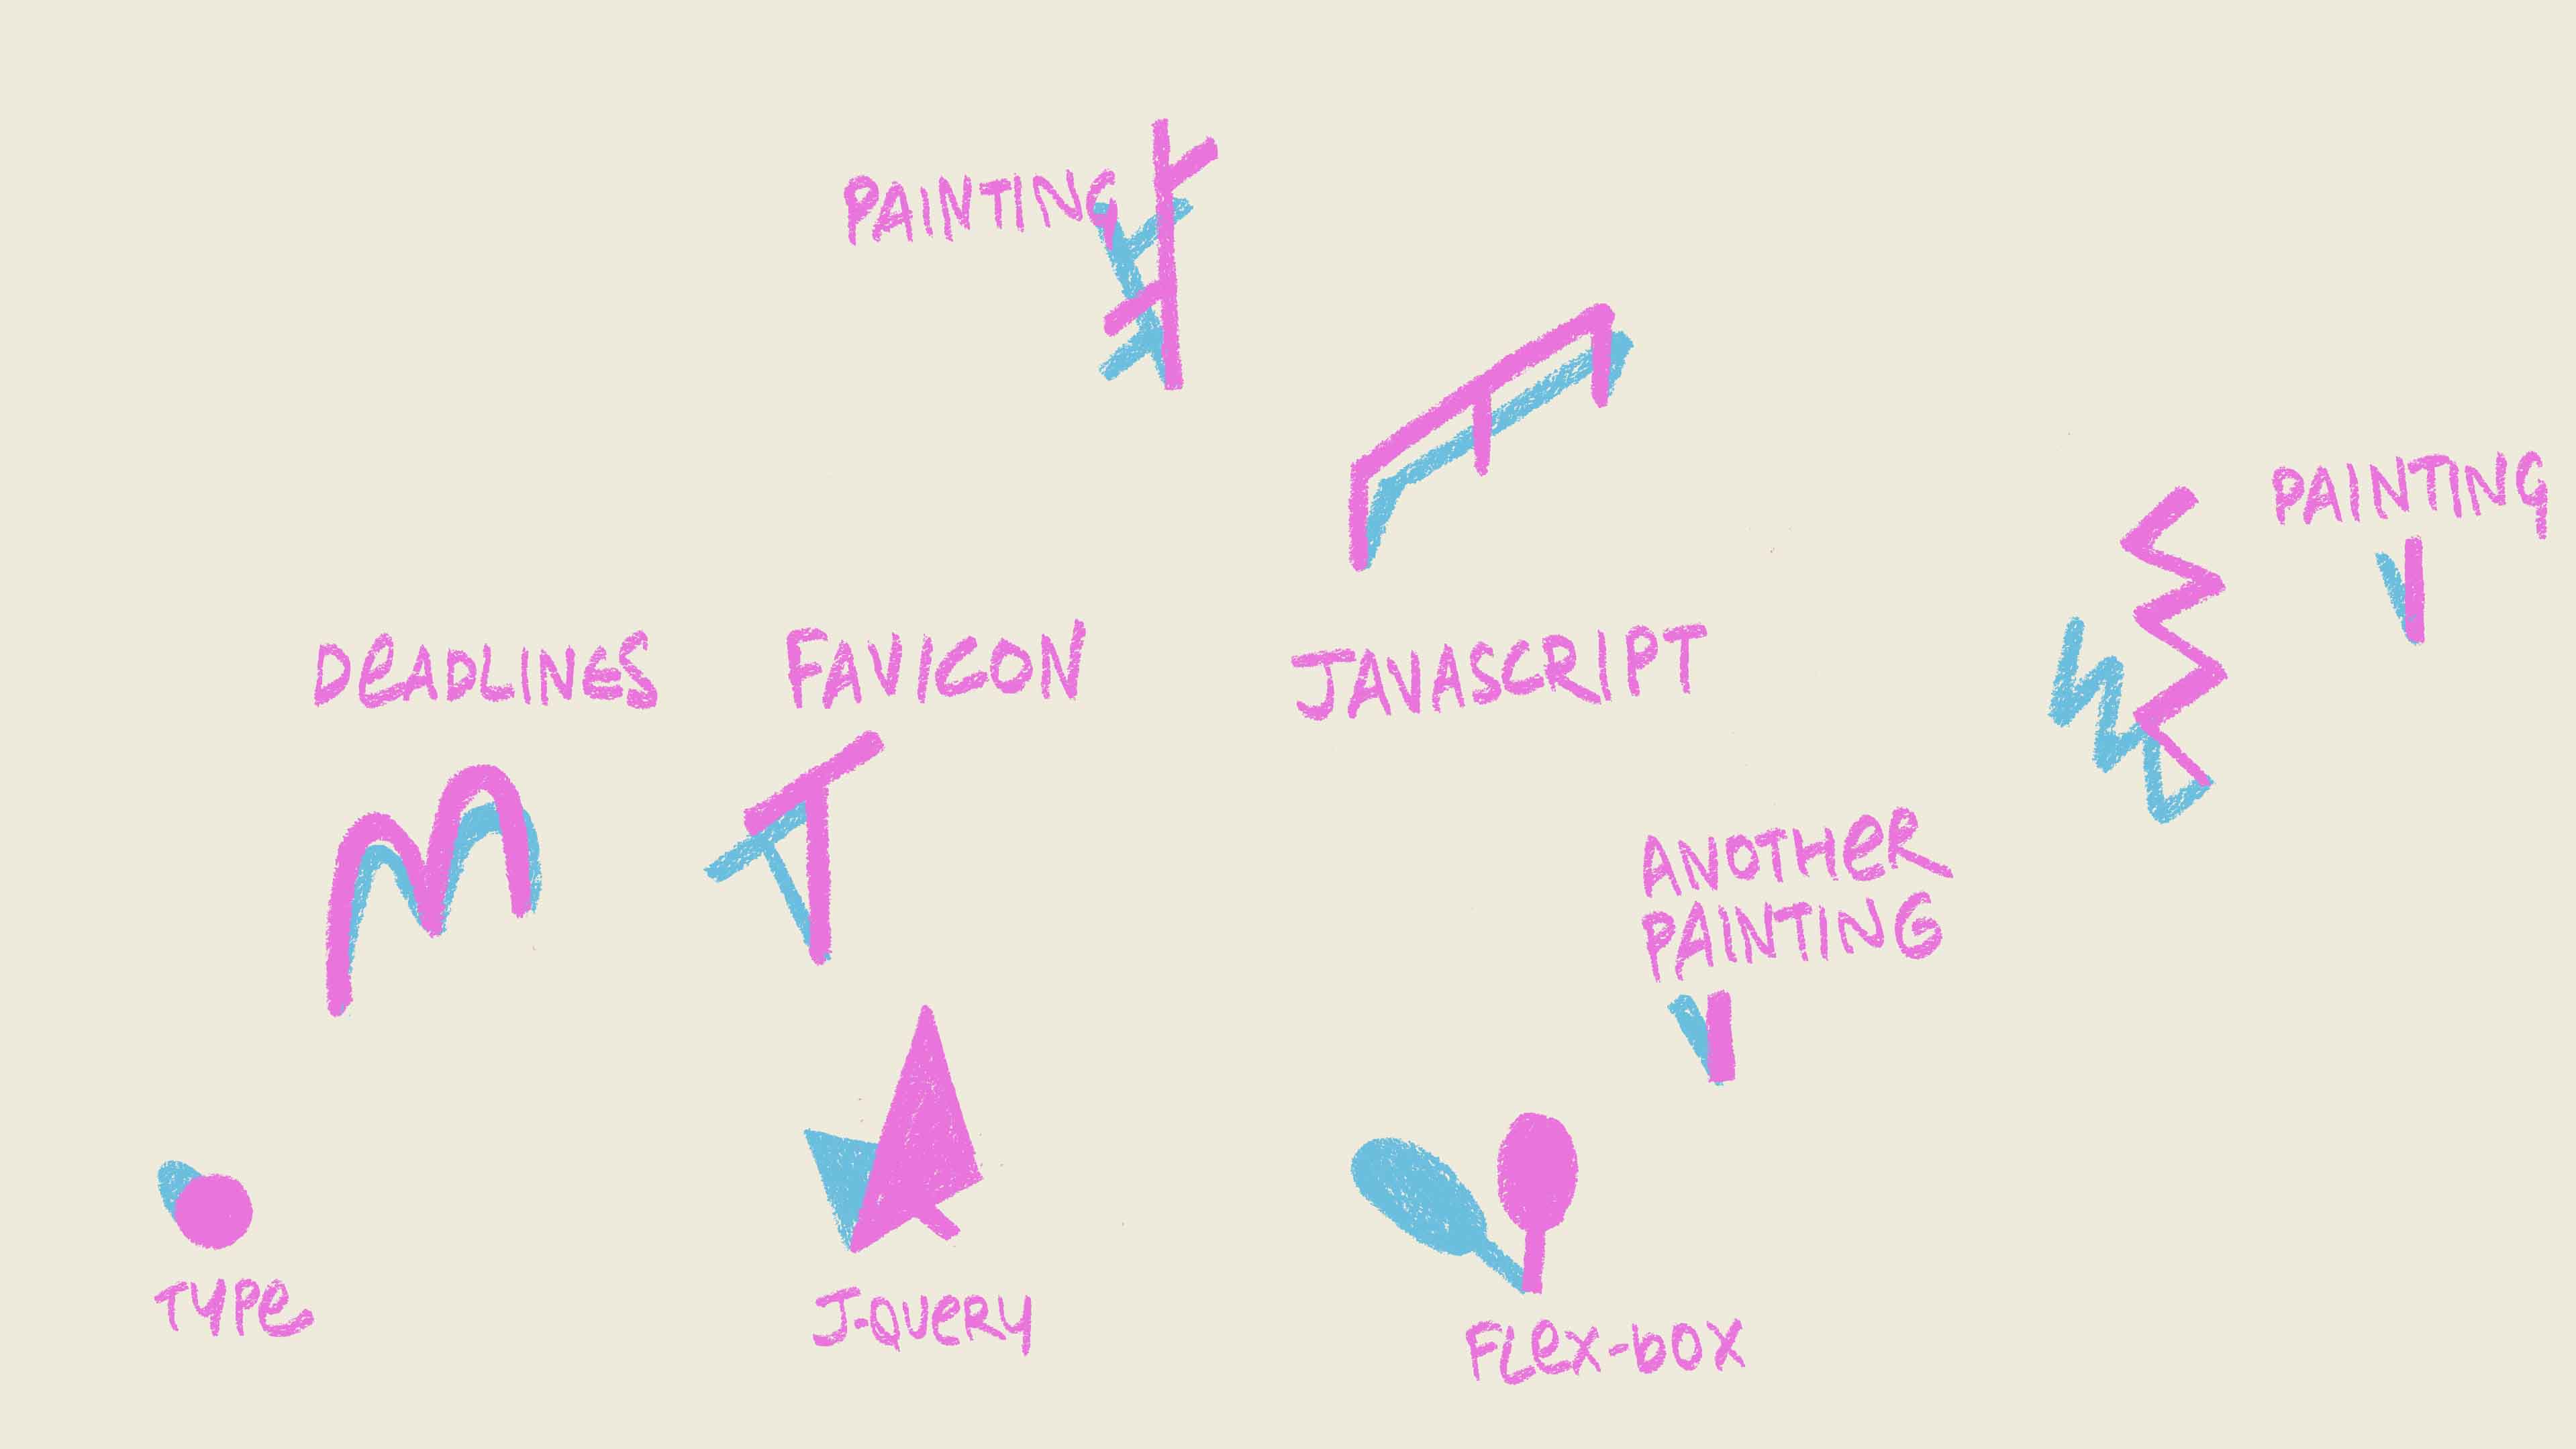 PAINTING
PAINTING
DeADLINES
FAVICON
JAVASCRIPT
ANOTHeR
PAINTING
TYPe
J-QUeRY
FLex-bOX